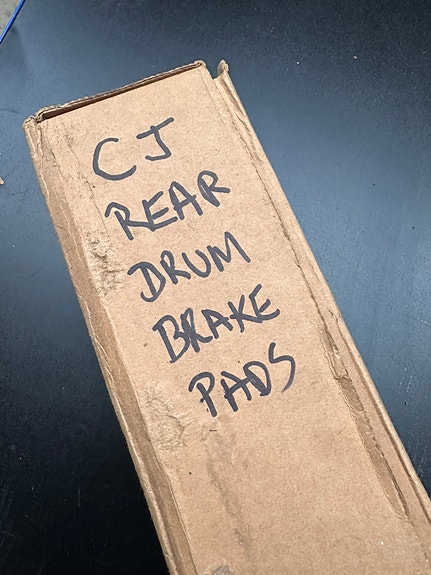 CJ
REAR
DRUM
BRAKE
PADS